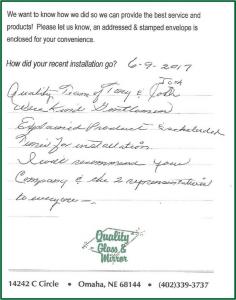 We want to know how we did so we can provide the best service and
products! Please let us know, an addressed & stamped envelope is
enclosed for your convenience.
How did your recent installation go? 6-9-2017
Josh
Quality Team of Tony &
Were Kind Gentlemen
Explained Product & scheduled
Time for installation
I will recommend you
Company & the 2 representatives
to everyone -
Quality
Glass &
Mirror
14242 C Circle • Omaha, NE 68144 • (402)339-3737